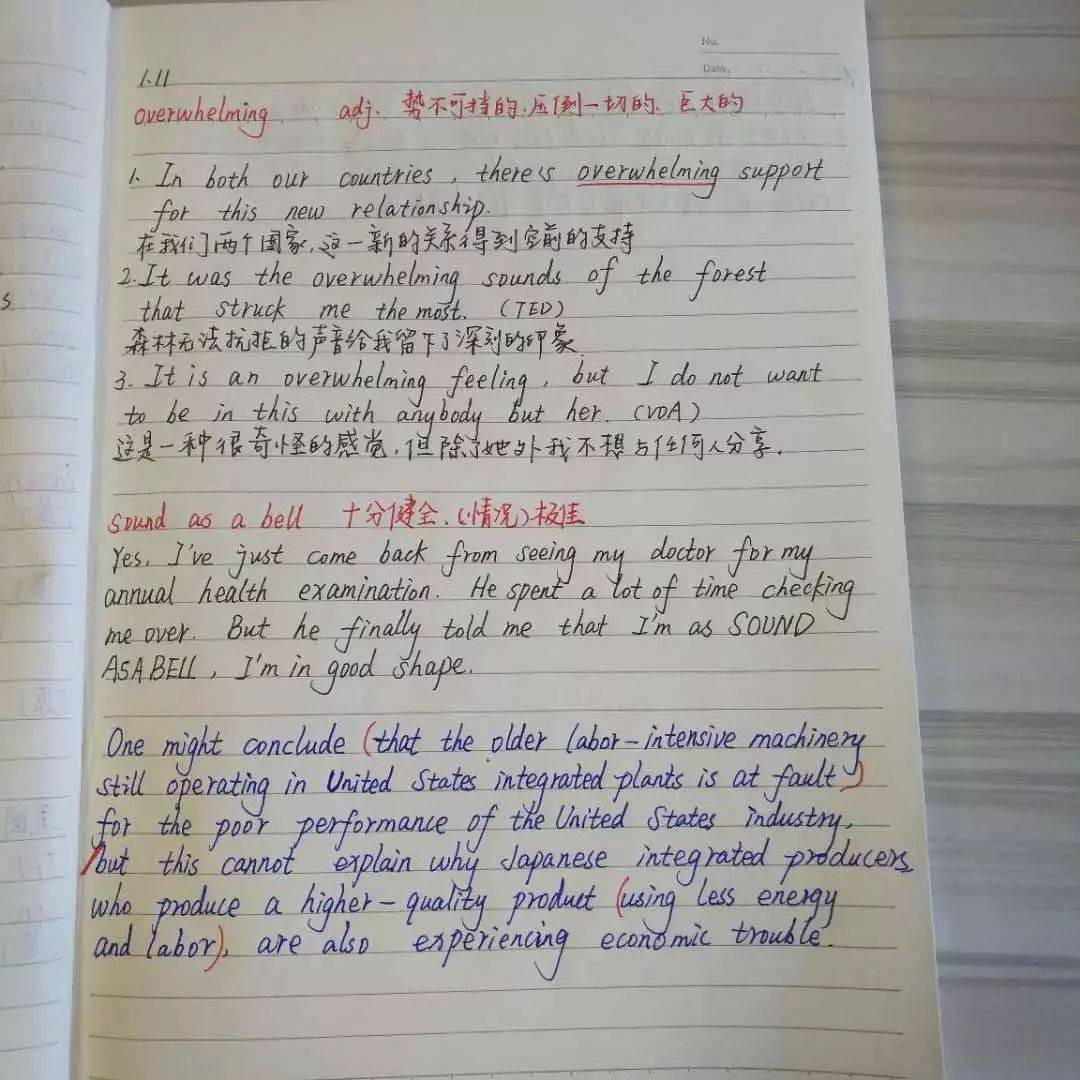 No.
Date.
1.11
overwhelming adj. 势不可挡的.压倒一切的. 巨大的
1. In both our countries, there's overwhelming support
for this new relationship.
在我们两个国家,这一新的关系得到空前的支持
2. It was the overwhelming sounds of the forest
that struck me the most. (TED)
森林无法抗拒的声音给我留下了深刻的印象.
3. It is an overwhelming feeling, but I do not want
to be in this with anybody but her. (VOA)
这是一种很奇怪的感觉,但除了她外我不想与任何人分享.
sound as a bell 十分健全.(情况)极佳
Yes, I've just come back from seeing my doctor for my
annual health examination. He spent a lot of time checking
me over. But he finally told me that I'm as SOUND
AS A BELL, I'm in good shape.
One might conclude (that the older labor-intensive machinery
still operating in United States integrated plants is at fault)
for the poor performance of the United States industry,
/but this cannot explain why Japanese integrated producers,
who produce a higher-quality product (using less energy
and labor), are also experiencing economic trouble.